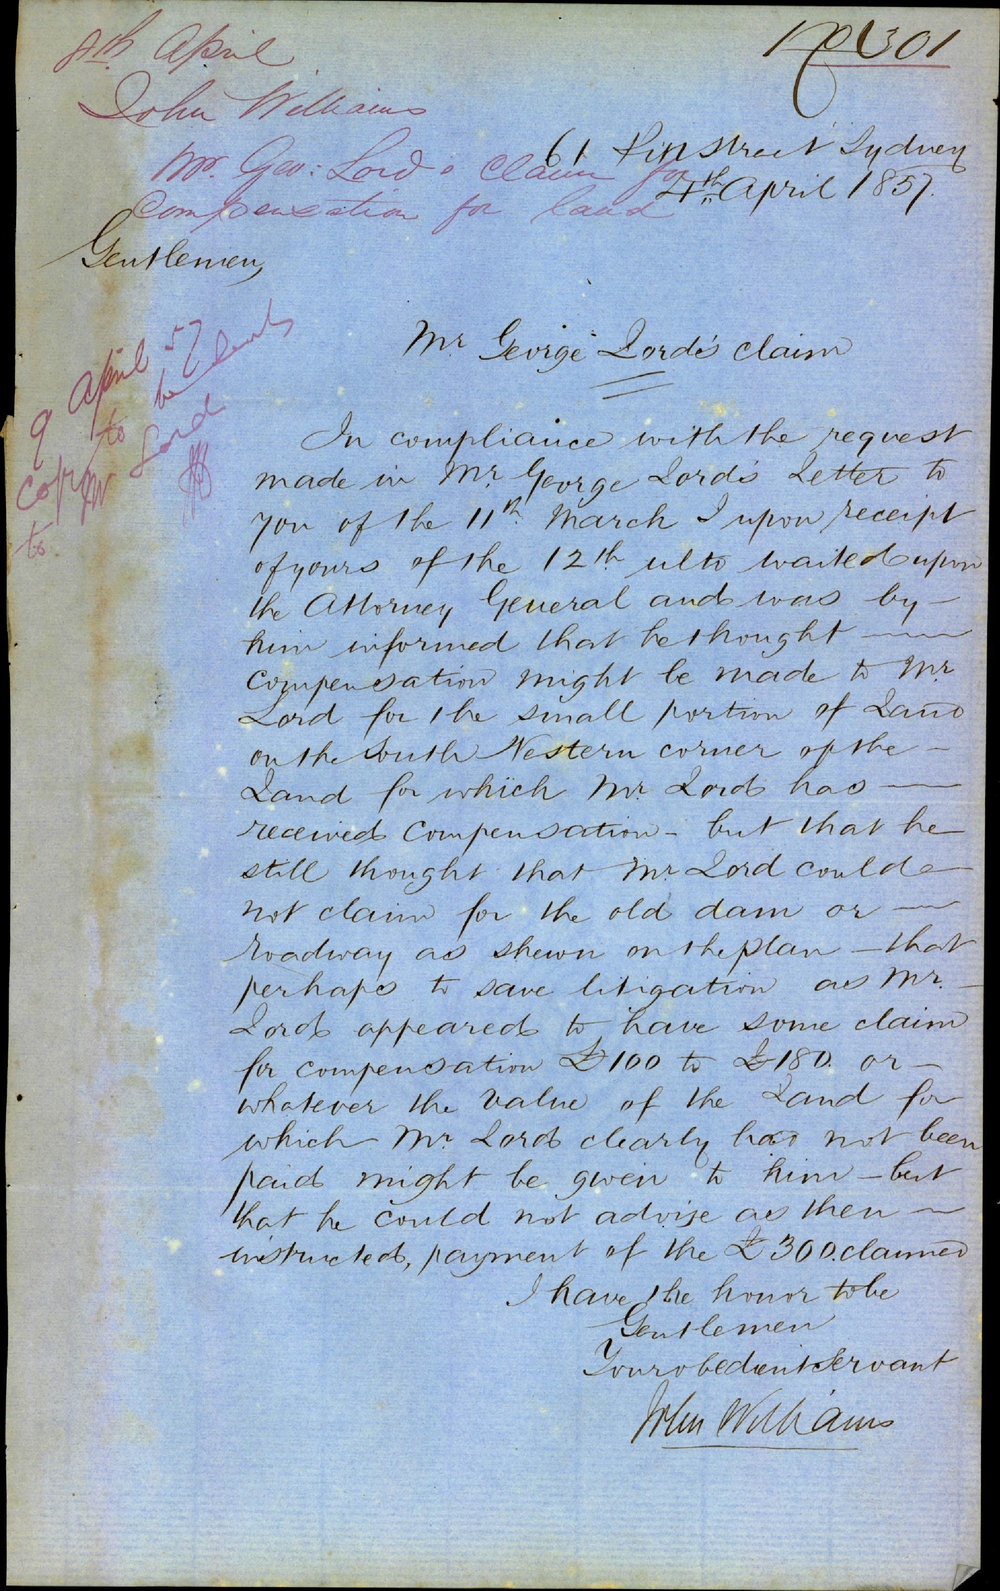 No 301
8th April
John Williams
Mr. Geo: Lord's claim for
compensation for land
61 Street Sydney
4th April 1857.
Gentlemen,
9 April 57
copy to be sent
to Mr Lord
Mr George Lord's claim
In compliance with the request
made in Mr George Lord's Letter to
you of the 11th March I upon receipt
of yours of the 12th ulto waited upon
the Attorney General and was by
him informed that he thought
compensation might be made to Mr
Lord for the small portion of Land
on the South Western corner of the
Land for which Mr. Lord has
received compensation - but that he
still thought that Mr Lord could
not claim for the old dam or
roadway as shewn on the plan - that
perhaps to save litigation as Mr.
Lord appeared to have some claim
for compensation £100 to £180. or
whatever the value of the Land for
which Mr Lord clearly has not been
paid might be given to him - but
that he could not advise as then
instructed, payment of the £300. claimed
I have the honor to be
Gentlemen
Your obedient servant
John Williams